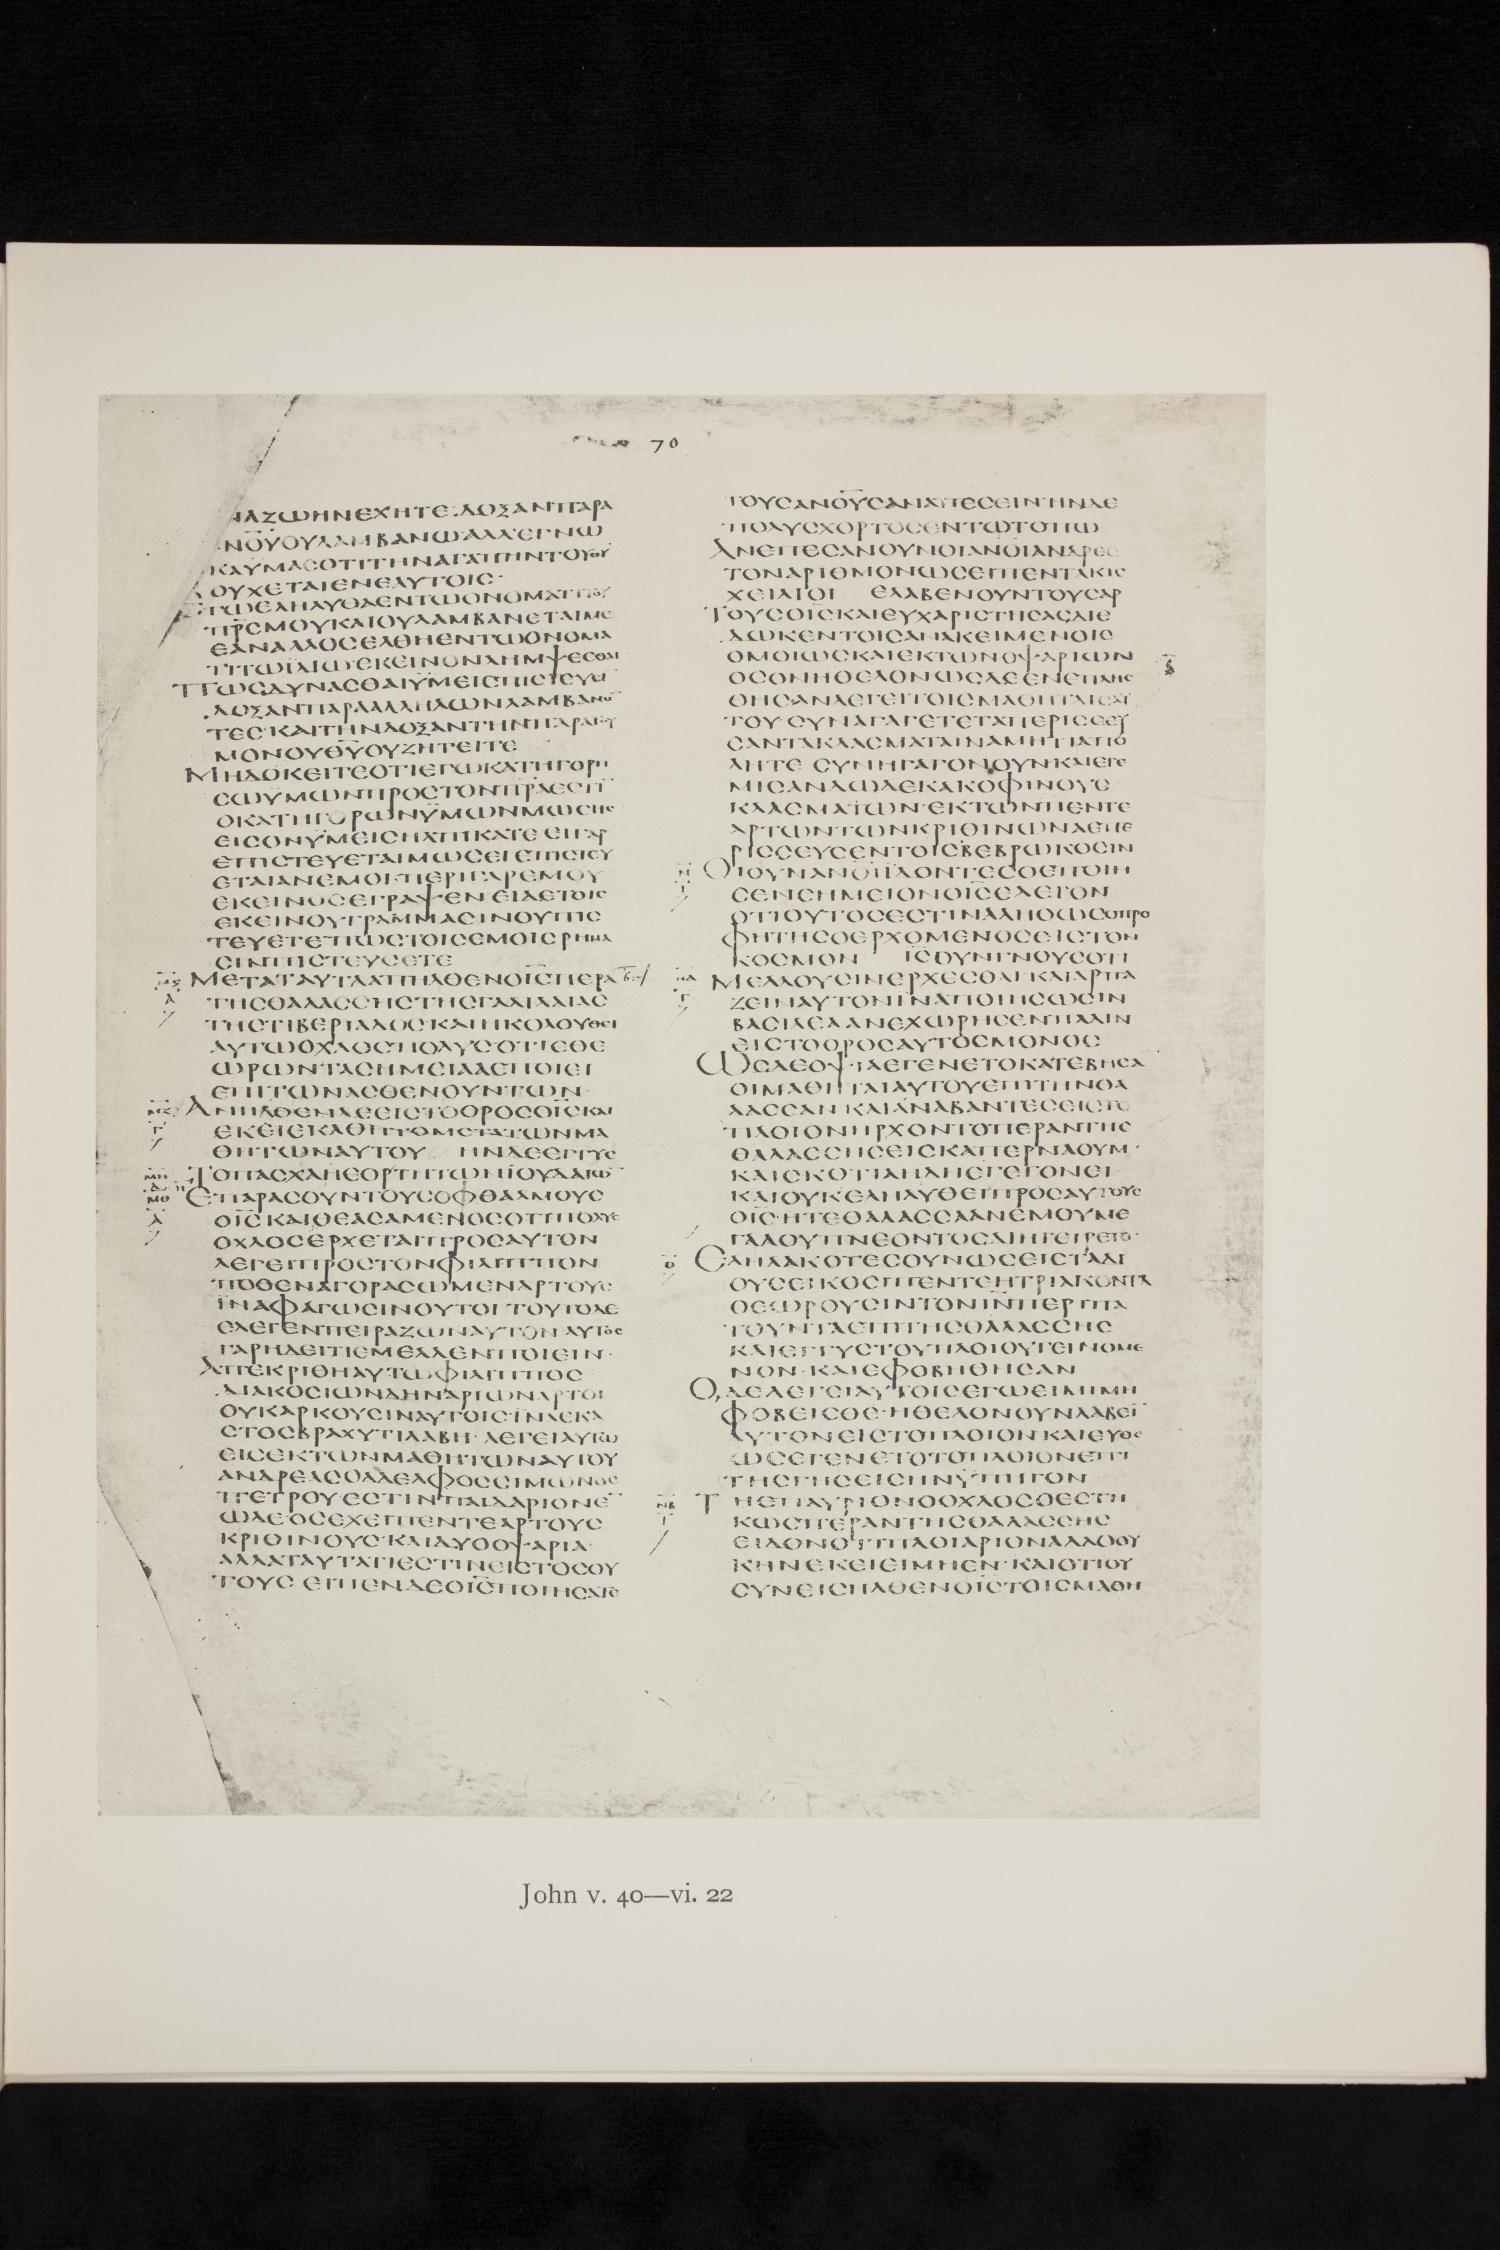 70
ΝΑΖΩΗΝΕΧΗΤΕ ΔΟΞΑΝΠΑΡΑ
ΝΟΥΟΥΛΑΜΒΑΝΩΑΛΛΕΓΝΩ
ΚΑΥΜΑΣΟΤΙΤΗΝΑΓΑΠΗΝΤΟΥΘΥ
ΟΥΧΕΤΑΙΕΝΕΑΥΤΟΙΣ
ΓΩΕΛΗΛΥΘΑΕΝΤΩΟΝΟΜΑΤΙΤΟΥ
ΠΡΣΜΟΥΚΑΙΟΥΛΑΜΒΑΝΕΤΑΙΜΕ
ΕΑΝΑΛΛΟΣΕΛΘΗΕΝΤΩΟΝΟΜΑ
ΤΙΤΩΙΔΙΩΕΚΕΙΝΟΝΛΗΜΨΕΣΘΑΙ
ΠΩΣΔΥΝΑΣΘΑΙΥΜΕΙΣΠΙΣΤΕΥΣΑΙ
ΔΟΞΑΝΠΑΡΑΛΛΗΛΩΝΛΑΜΒΑΝΟ
ΤΕΣΚΑΙΤΗΝΔΟΞΑΝΤΗΝΠΑΡΑΤΟΥ
ΜΟΝΟΥΘΥΟΥΖΗΤΕΙΤΕ
ΜΗΔΟΚΕΙΤΕΟΤΙΕΓΩΚΑΤΗΓΟΡΗ
ΣΩΥΜΩΝΠΡΟΣΤΟΝΠΡΑΕΣΤΙ
ΟΚΑΤΗΓΟΡΩΝΥΜΩΝΜΩΣΗΣ
ΕΙΣΟΝΥΜΕΙΣΗΛΠΙΚΑΤΕ ΕΙΓΑΡ
ΕΠΙΣΤΕΥΕΤΑΙΜΩΣΕΙΕΠΙΣΤΕΥ
ΕΤΑΙΑΝΕΜΟΙ ΠΕΡΙΓΑΡΕΜΟΥ
ΕΚΕΙΝΟΣΕΓΡΑΨΕΝ ΕΙΔΕΤΟΙΣ
ΕΚΕΙΝΟΥΓΡΑΜΜΑΣΙΝΟΥΠΙΣ
ΤΕΥΕΤΕΠΩΣΤΟΙΣΕΜΟΙΣΡΗΜΑ
ΣΙΝΠΙΣΤΕΥΣΕΤΕ
ΜΕΤΑΤΑΥΤΑΑΠΗΛΘΕΝΟΙΣΠΕΡΑ
ΤΗΣΘΑΛΑΣΣΗΣΤΗΣΓΑΛΙΛΑΙΑΣ
ΤΗΣΤΙΒΕΡΙΑΔΟΣΚΑΙΗΚΟΛΟΥΘΕΙ
ΑΥΤΩΟΧΛΟΣΠΟΛΥΣΟΤΙΕΘΕ
ΩΡΩΝΤΑΣΗΜΕΙΑΑΕΠΟΙΕΙ
ΕΠΙΤΩΝΑΣΘΕΝΟΥΝΤΩΝ
ΑΝΗΛΘΕΝΔΕΕΙΣΤΟΟΡΟΣΟΙΣΚΑΙ
ΕΚΕΙΕΚΑΘΗΤΟΜΕΤΑΤΩΝΜΑ
ΘΗΤΩΝΑΥΤΟΥ ΗΝΔΕΕΓΓΥΣ
ΤΟΠΑΣΧΑΗΕΟΡΤΗΤΩΝΙΟΥΔΑΙΩ
ΕΠΑΡΑΣΟΥΝΤΟΥΣΟΦΘΑΛΜΟΥΣ
ΟΙΣΚΑΙΘΕΑΣΑΜΕΝΟΣΟΤΙΠΟΛΥΣ
ΟΧΛΟΣΕΡΧΕΤΑΙΠΡΟΣΑΥΤΟΝ
ΛΕΓΕΙΠΡΟΣΤΟΝΦΙΛΙΠΠΟΝ
ΠΟΘΕΝΑΓΟΡΑΣΩΜΕΝΑΡΤΟΥΣ
ΙΝΑΦΑΓΩΣΙΝΟΥΤΟΙ ΤΟΥΤΟΔΕ
ΕΛΕΓΕΝΠΕΙΡΑΖΩΝΑΥΤΟΝ ΑΥΤΟΣ
ΓΑΡΗΔΕΙΤΙΕΜΕΛΛΕΝΠΟΙΕΙΝ
ΑΠΕΚΡΙΘΗΑΥΤΩΦΙΛΙΠΠΟΣ
ΔΙΑΚΟΣΙΩΝΔΗΝΑΡΙΩΝΑΡΤΟΙ
ΟΥΚΑΡΚΟΥΣΙΝΑΥΤΟΙΣΙΝΑΕΚΑ
ΣΤΟΣΒΡΑΧΥΤΙΛΑΒΗ ΛΕΓΕΙΑΥΤΩ
ΕΙΣΕΚΤΩΝΜΑΘΗΤΩΝΑΥΤΟΥ
ΑΝΔΡΕΑΣΟΑΔΕΛΦΟΣΣΙΜΩΝΟΣ
ΠΕΤΡΟΥΕΣΤΙΝΠΑΙΔΑΡΙΟΝΕ
ΩΔΕΟΣΕΧΕΙΠΕΝΤΕΑΡΤΟΥΣ
ΚΡΙΘΙΝΟΥΣΚΑΙΔΥΟΟΨΑΡΙΑ
ΑΛΛΑΤΑΥΤΑΤΙΕΣΤΙΝΕΙΣΤΟΣΟΥ
ΤΟΥΣ ΕΙΠΕΝΔΕΟΙΣΠΟΙΗΣΑΤΕ
ΤΟΥΣΑΝΟΥΣΑΝΑΠΕΣΕΙΝ ΗΝΔΕ
ΠΟΛΥΣΧΟΡΤΟΣΕΝΤΩΤΟΠΩ
ΑΝΕΠΕΣΑΝΟΥΝΟΙΑΝΟΙΑΝΔΡΕΣ
ΤΟΝΑΡΙΘΜΟΝΩΣΕΙΠΕΝΤΑΚΙΣ
ΧΕΙΛΙΟΙ ΕΛΑΒΕΝΟΥΝΤΟΥΣΑΡ
ΤΟΥΣΟΙΣΚΑΙΕΥΧΑΡΙΣΤΗΣΑΣΔΙΕ
ΔΩΚΕΝΤΟΙΣΑΝΑΚΕΙΜΕΝΟΙΣ
ΟΜΟΙΩΣΚΑΙΕΚΤΩΝΟΨΑΡΙΩΝ
ΟΣΟΝΗΘΕΛΟΝΩΣΔΕΕΝΕΠΛΗΣ
ΘΗΣΑΝΛΕΓΕΙΤΟΙΣΜΑΘΗΤΑΙΣΑΥ
ΤΟΥ ΣΥΝΑΓΑΓΕΤΕΤΑΠΕΡΙΣΣΕΥ
ΣΑΝΤΑΚΛΑΣΜΑΤΑΙΝΑΜΗΤΙΑΠΟ
ΛΗΤΕ ΣΥΝΗΓΑΓΟΝΟΥΝΚΑΙΕΓΕ
ΜΙΣΑΝΔΩΔΕΚΑΚΟΦΙΝΟΥΣ
ΚΛΑΣΜΑΤΩΝ ΕΚΤΩΝΠΕΝΤΕ
ΑΡΤΩΝΤΩΝΚΡΙΘΙΝΩΝΑΕΠΕ
ΡΙΣΣΕΥΣΕΝΤΟΙΣΒΕΒΡΩΚΟΣΙΝ
ΟΙΟΥΝΑΝΟΙΙΔΟΝΤΕΣΟΕΠΟΙΗ
ΣΕΝΣΗΜΕΙΟΝΟΙΣΕΛΕΓΟΝ
ΟΤΙΟΥΤΟΣΕΣΤΙΝΑΛΗΘΩΣΟΠΡΟ
ΦΗΤΗΣΟΕΡΧΟΜΕΝΟΣΕΙΣΤΟΝ
ΚΟΣΜΟΝ ΙΣΟΥΝΓΝΟΥΣΟΤΙ
ΜΕΛΛΟΥΣΙΝΕΡΧΕΣΘΑΙΚΑΙΑΡΠΑ
ΖΕΙΝΑΥΤΟΝΙΝΑΠΟΙΗΣΩΣΙΝ
ΒΑΣΙΛΕΑΑΝΕΧΩΡΗΣΕΝΠΑΛΙΝ
ΕΙΣΤΟΟΡΟΣΑΥΤΟΣΜΟΝΟΣ
ΩΣΔΕΟΨΙΑΕΓΕΝΕΤΟΚΑΤΕΒΗΣΑ
ΟΙΜΑΘΗΤΑΙΑΥΤΟΥΕΠΙΤΗΝΘΑ
ΛΑΣΣΑΝ ΚΑΙΑΝΑΒΑΝΤΕΣΕΙΣΤΟ
ΠΛΟΙΟΝΗΡΧΟΝΤΟΠΕΡΑΝΤΗΣ
ΘΑΛΑΣΣΗΣΕΙΣΚΑΠΕΡΝΑΟΥΜ
ΚΑΙΣΚΟΤΙΑΗΔΗΕΓΕΓΟΝΕΙ
ΚΑΙΟΥΚΕΛΗΛΥΘΕΙΠΡΟΣΑΥΤΟΥΣ
ΟΙΣ ΗΤΕΘΑΛΑΣΣΑΑΝΕΜΟΥΜΕ
ΓΑΛΟΥΠΝΕΟΝΤΟΣΔΙΗΓΕΙΡΕΤΟ
ΕΛΗΛΑΚΟΤΕΣΟΥΝΩΣΕΙΣΤΑΔΙ
ΟΥΣΕΙΚΟΣΙΠΕΝΤΕΗΤΡΙΑΚΟΝΤΑ
ΘΕΩΡΟΥΣΙΝΤΟΝΙΝΠΕΡΙΠΑ
ΤΟΥΝΤΑΕΠΙΤΗΣΘΑΛΑΣΣΗΣ
ΚΑΙΕΓΓΥΣΤΟΥΠΛΟΙΟΥΓΕΙΝΟΜΕ
ΝΟΝ ΚΑΙΕΦΟΒΗΘΗΣΑΝ
ΟΔΕΛΕΓΕΙΑΥΤΟΙΣΕΓΩΕΙΜΙΜΗ
ΦΟΒΕΙΣΘΕ ΗΘΕΛΟΝΟΥΝΛΑΒΕΙ
ΑΥΤΟΝΕΙΣΤΟΠΛΟΙΟΝΚΑΙΕΥΘΕ
ΩΣΕΓΕΝΕΤΟΤΟΠΛΟΙΟΝΕΠΙ
ΤΗΣΓΗΣΕΙΣΗΝΥΠΗΓΟΝ
ΤΗΕΠΑΥΡΙΟΝΟΟΧΛΟΣΟΕΣΤΗ
ΚΩΣΠΕΡΑΝΤΗΣΘΑΛΑΣΣΗΣ
ΕΙΔΟΝΟΤΙΠΛΟΙΑΡΙΟΝΑΛΛΟΟΥ
ΚΗΝΕΚΕΙΕΙΜΗΕΝ ΚΑΙΟΤΙΟΥ
ΣΥΝΕΙΣΗΛΘΕΝΟΙΣΤΟΙΣΜΑΘΗ
John v. 40—vi. 22